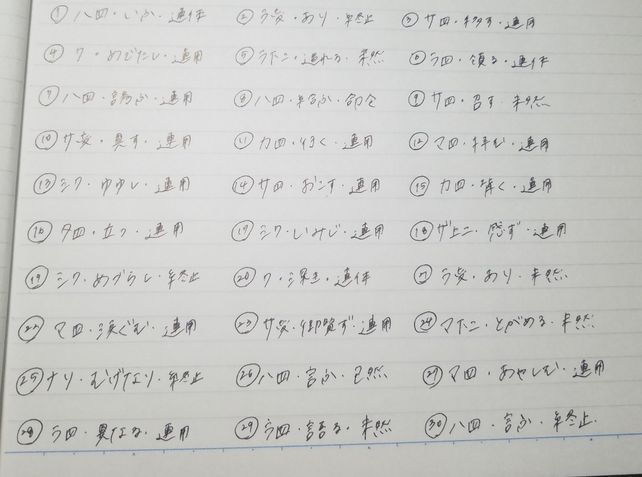 ① ハ四・いふ・連体 ② ラ変・あり・終止 ③ サ四・移す・連用
④ ク・めでたし・連用 ⑤ ラ下二・連れる・未然 ⑥ ラ四・領る・連体
⑦ ハ四・請ふ・連用 ⑧ ハ四・給ふ・命令 ⑨ サ四・召す・未然
⑩ サ変・具す・連用 ⑪ カ四・行く・連用 ⑫ マ四・拝む・連用
⑬ シク・ゆゆし・連用 ⑭ サ四・おこす・連用 ⑮ カ四・背く・連用
⑯ タ四・立つ・連用 ⑰ シク・いみじ・連用 ⑱ ザ上二・感ず・連用
⑲ シク・めづらし・終止 ⑳ ク・深き・連体 ㉑ ラ変・あり・未然
㉒ マ四・涙ぐむ・連用 ㉓ サ変・御覧ず・連用 ㉔ マ下二・とがめる・未然
㉕ ナリ・むげなり・終止 ㉖ ハ四・言ふ・已然 ㉗ マ四・あやしむ・連用
㉘ ラ四・異なる・連用 ㉙ ラ四・語る・未然 ㉚ ハ四・言ふ・終止